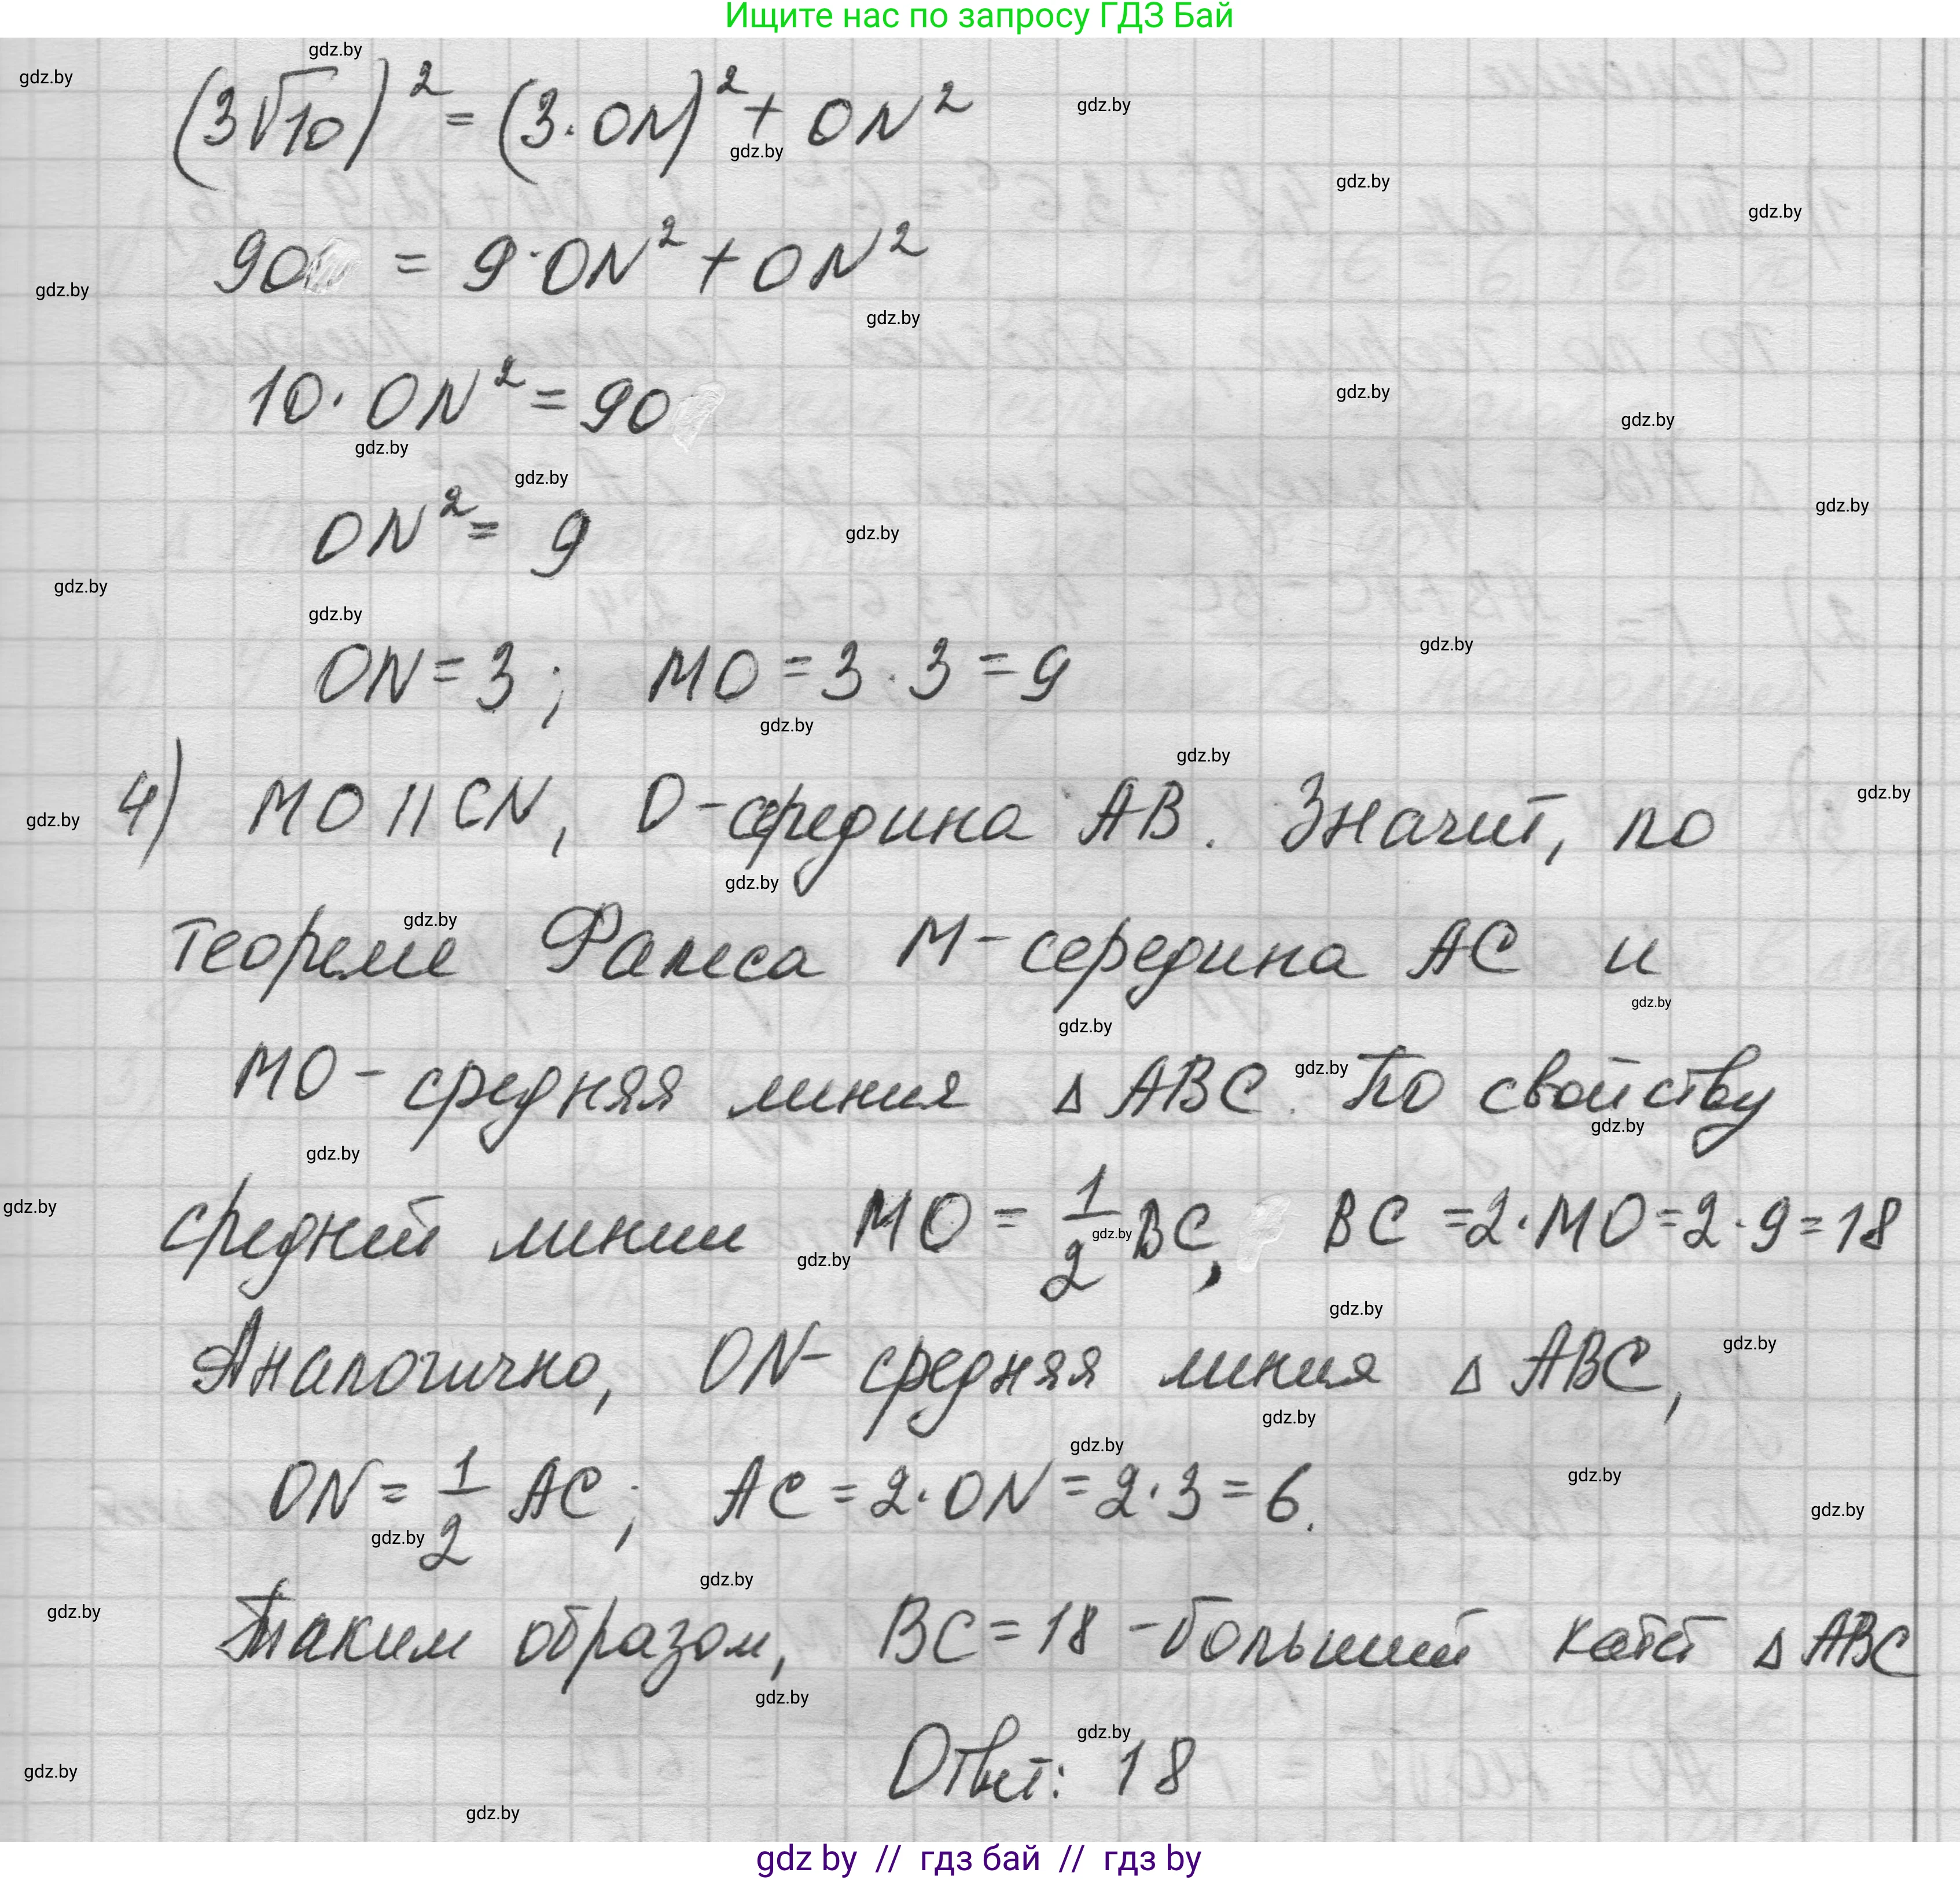 Ищите нас по запросу ГДЗ Бай
(3√10)² = (3·ON)² + ON²
90 = 9·ON² + ON²
10·ON² = 90
ON² = 9
ON = 3; MO = 3·3 = 9
4) MO || CN, O-середина AB. Значит, по
теореме Фалеса M-середина AC и
MO-средняя линия △ABC. По свойству
средней линии MO = 1/2 BC, BC = 2·MO = 2·9 = 18
Аналогично, ON- средняя линия △ABC,
ON = 1/2 AC; AC = 2·ON = 2·3 = 6.
Таким образом, BC = 18 -больший катет △ABC
Ответ: 18
gdz by // гдз бай // гдз by